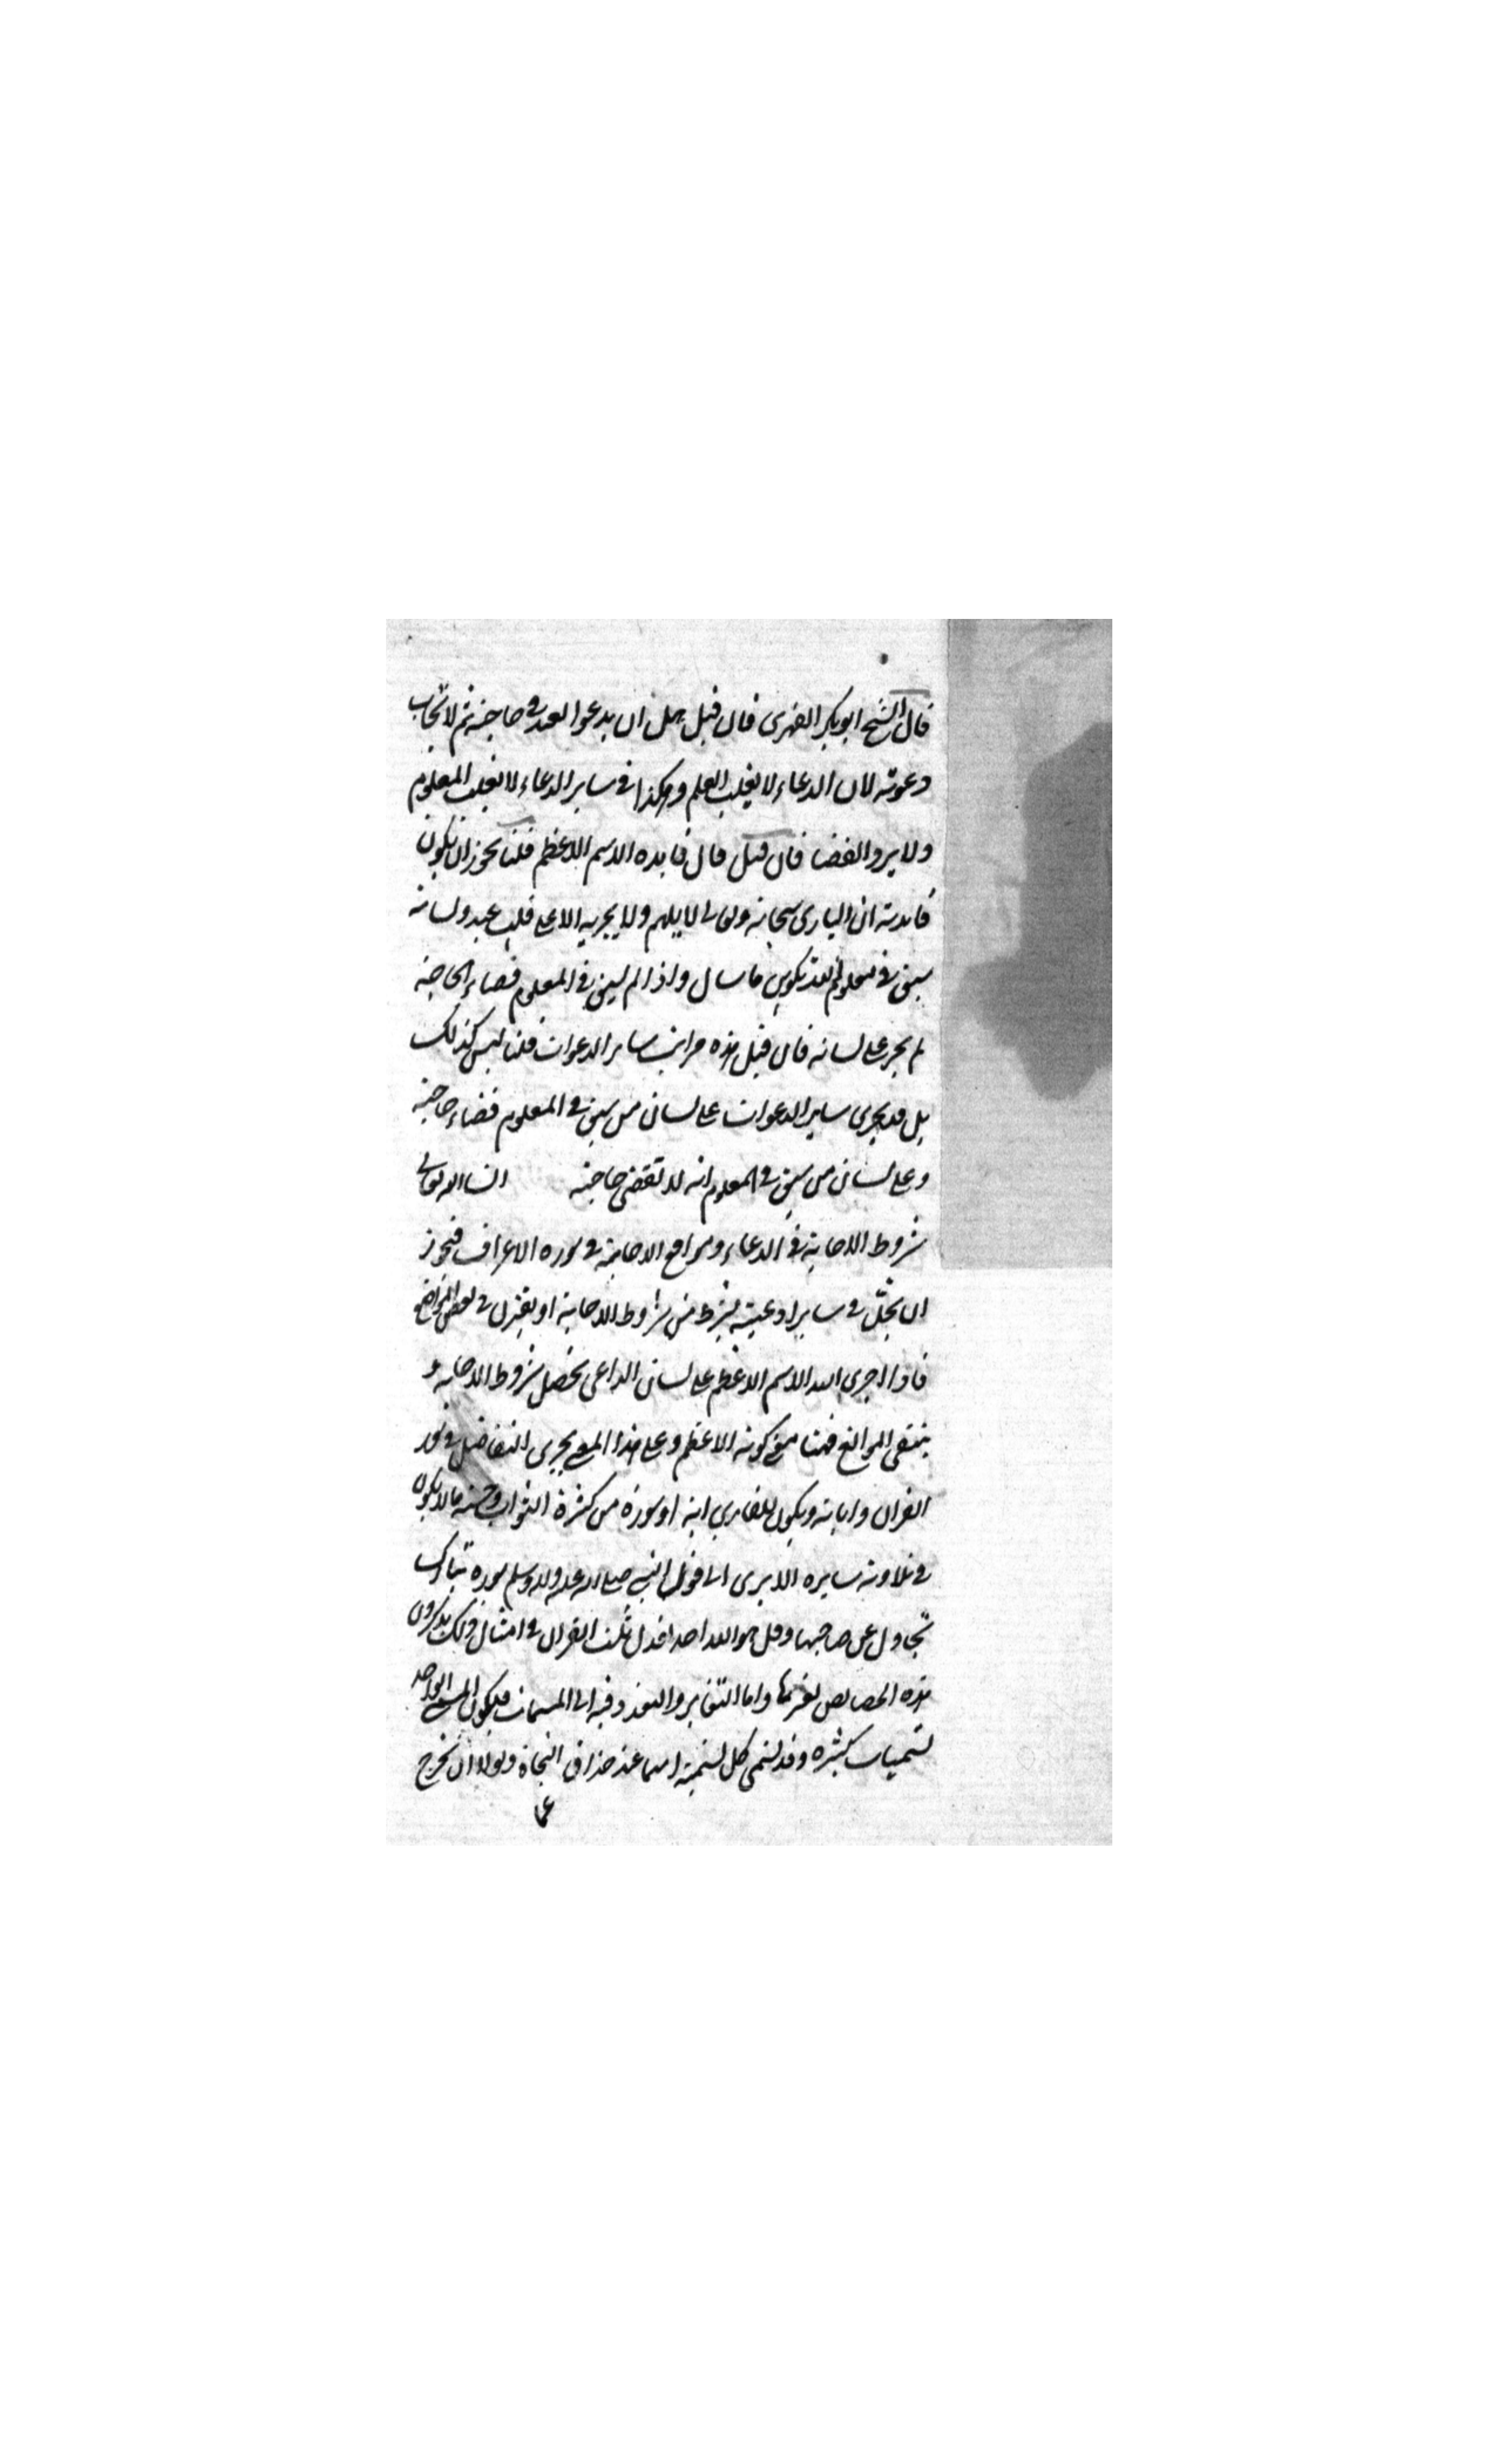 قال الشيخ ابو بكر الفهرى فان قيل هل ان يدعوا العبد فى حاجة ثم لا تجاب
دعوته لان الدعاء لا يغلب العلم وهكذا فى ساير الدعاء لا يغلب المعلوم
ولا يرد القضا فان قيل فاى فايده الاسم الاعظم قلنا يجوز ان يكون
فايدته ان البارى سبحانه وتعالى لا يلهم ولا يجريه الا على قلب عبد ولسانه
سبق فى معلوم تكوين ما سال واذا لم يسبق فى المعلوم قضاء الحاجة
لم يجر على لسانه فان قيل هذه مراتب ساير الدعوات قلنا ليس كذلك
بل قد يجرى ساير الدعوات على لسان من سبق فى المعلوم قضاء حاجته
وعلى لسان من سبق فى المعلوم انه لا تقضى حاجته الله تعالى
شروط الاجابة فى الدعاء وموانع الاجابة فى سوره الاعراف فيجوز
ان يختل فى ساير ادعيته شرط من شروط الاجابة او فى بعض الموانع
فاذا اجرى الله الاسم الاعظم على لسان الداعى تحصل شروط الاجابة و
ينتفى الموانع فهذا معنى كونه الاعظم وعلى هذا المعنى يجرى التفاضل فى سور
القران واياته ويكون للقارى اية او سورة من كثرة الثواب مالا يكون
فى تلاوته سايره الا يرى الى قول النبى صلى الله عليه واله وسلم سوره تبارك
تجادل عن صاحبها وقل هو الله احد تعدل ثلث القران فى امثال ذلك يذكرون
هذه الخصايص لغيرها واما التغاير والتعدد فيه الى المسميات فيكون المسمى الواحد
تسميات كثيره وقد تسمى كل تسمية اسما عند حذاق النحاة ولولا ان نخرج
عما